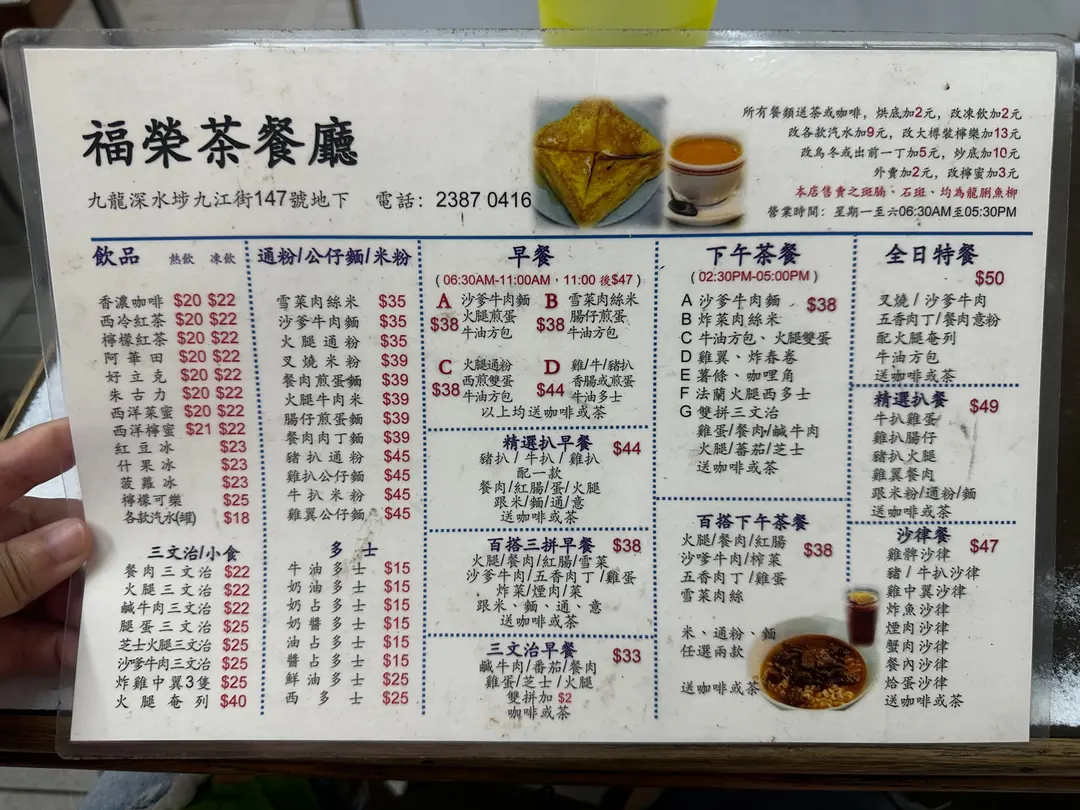 福榮茶餐廳
九龍深水埗九江街147號地下 電話：2387 0416
所有餐類送茶或咖啡，烘底加2元，改凍飲加2元
改各款汽水加9元，改大樽裝檸樂加13元
改烏冬或出前一丁加5元，炒底加10元
外賣加2元，改檸蜜加3元
本店售賣之斑腩、石斑、均為龍脷魚柳
營業時間：星期一至六06:30AM至05:30PM
飲品 熱飲 凍飲
香濃咖啡 $20 $22
西冷紅茶 $20 $22
檸檬紅茶 $20 $22
阿華田 $20 $22
好立克 $20 $22
朱古力 $20 $22
西洋菜蜜 $20 $22
西洋檸蜜 $21 $22
紅豆冰 $23
什果冰 $23
菠蘿冰 $23
檸檬可樂 $25
各款汽水(罐) $18
三文治/小食
餐肉三文治 $22
火腿三文治 $22
鹹牛肉三文治 $22
腿蛋三文治 $25
芝士火腿三文治 $25
沙爹牛肉三文治 $25
炸雞中翼3隻 $25
火腿奄列 $40
通粉/公仔麵/米粉
雪菜肉絲米 $35
沙爹牛肉麵 $35
火腿通粉 $35
叉燒米粉 $39
餐肉煎蛋麵 $39
火腿牛肉米 $39
腸仔煎蛋麵 $39
餐肉肉丁麵 $39
豬扒通粉 $45
雞扒公仔麵 $45
牛扒米粉 $45
雞翼公仔麵 $45
多士
牛油多士 $15
奶油多士 $15
奶占多士 $15
奶醬多士 $15
油占多士 $15
醬占多士 $15
鮮油多士 $25
西多士 $25
早餐
( 06:30AM-11:00AM，11:00 後$47 )
A 沙爹牛肉麵
火腿煎蛋
$38 牛油方包
B 雪菜肉絲米
腸仔煎蛋
$38 牛油方包
C 火腿通粉
西煎雙蛋
$38 牛油方包
D 雞/牛/豬扒
香腸或煎蛋
$44 牛油多士
以上均送咖啡或茶
精選扒早餐 $44
豬扒 / 牛扒 / 雞扒
配一款
餐肉/紅腸/蛋/火腿
跟米/麵/通/意
送咖啡或茶
百搭三拼早餐 $38
火腿/餐肉/紅腸/雪菜
沙爹牛肉/五香肉丁/雞蛋
炸菜/煙肉/菜
跟米、麵、通、意
送咖啡或茶
三文治早餐 $33
鹹牛肉/番茄/餐肉
雞蛋/芝士/火腿
雙拼加 $2
咖啡或茶
下午茶餐
( 02:30PM-05:00PM )
$38
A 沙爹牛肉麵
B 炸菜肉絲米
C 牛油方包、火腿雙蛋
D 雞翼、炸春卷
E 薯條、咖哩角
F 法蘭火腿西多士
G 雙拼三文治
雞蛋/餐肉/鹹牛肉
火腿/蕃茄/芝士
送咖啡或茶
百搭下午茶餐
火腿/餐肉/紅腸 $38
沙嗲牛肉/榨菜
五香肉丁/雞蛋
雪菜肉絲
米、通粉、麵
任選兩款
送咖啡或茶
全日特餐
$50
叉燒 / 沙爹牛肉
五香肉丁/餐肉意粉
配火腿奄列
牛油方包
送咖啡或茶
精選扒餐 $49
牛扒雞蛋
雞扒腸仔
豬扒火腿
雞翼餐肉
跟米粉/通粉/麵
送咖啡或茶
沙律餐 $47
雞髀沙律
豬 / 牛扒沙律
雞中翼沙律
炸魚沙律
煙肉沙律
蟹肉沙律
餐肉沙律
烚蛋沙律
送咖啡或茶